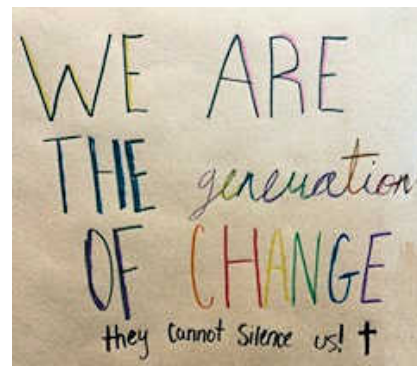 WE ARE
THE generation
OF CHANGE
they cannot silence us! ✝